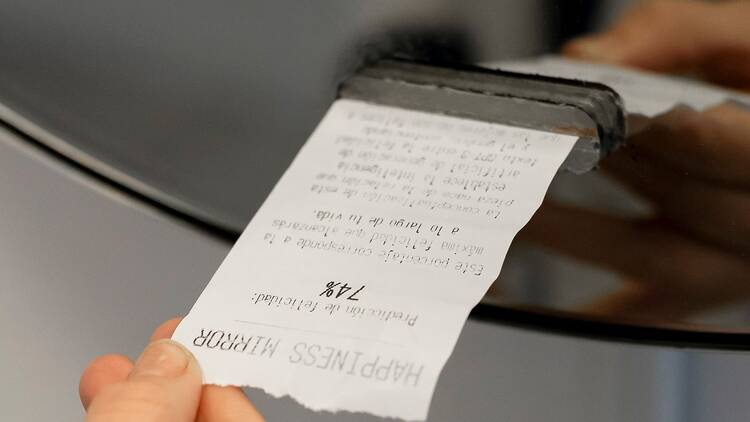 HAPPINESS MIRROR
Predicción de felicidad:
74%
Este porcentaje corresponde a la
máxima felicidad que alcanzarás
a lo largo de tu vida.
La conceptualización de esta
pieza nace de la relación que
establece la inteligencia
artificial de generación de
texto GPT 3 entre la felicidad
y el